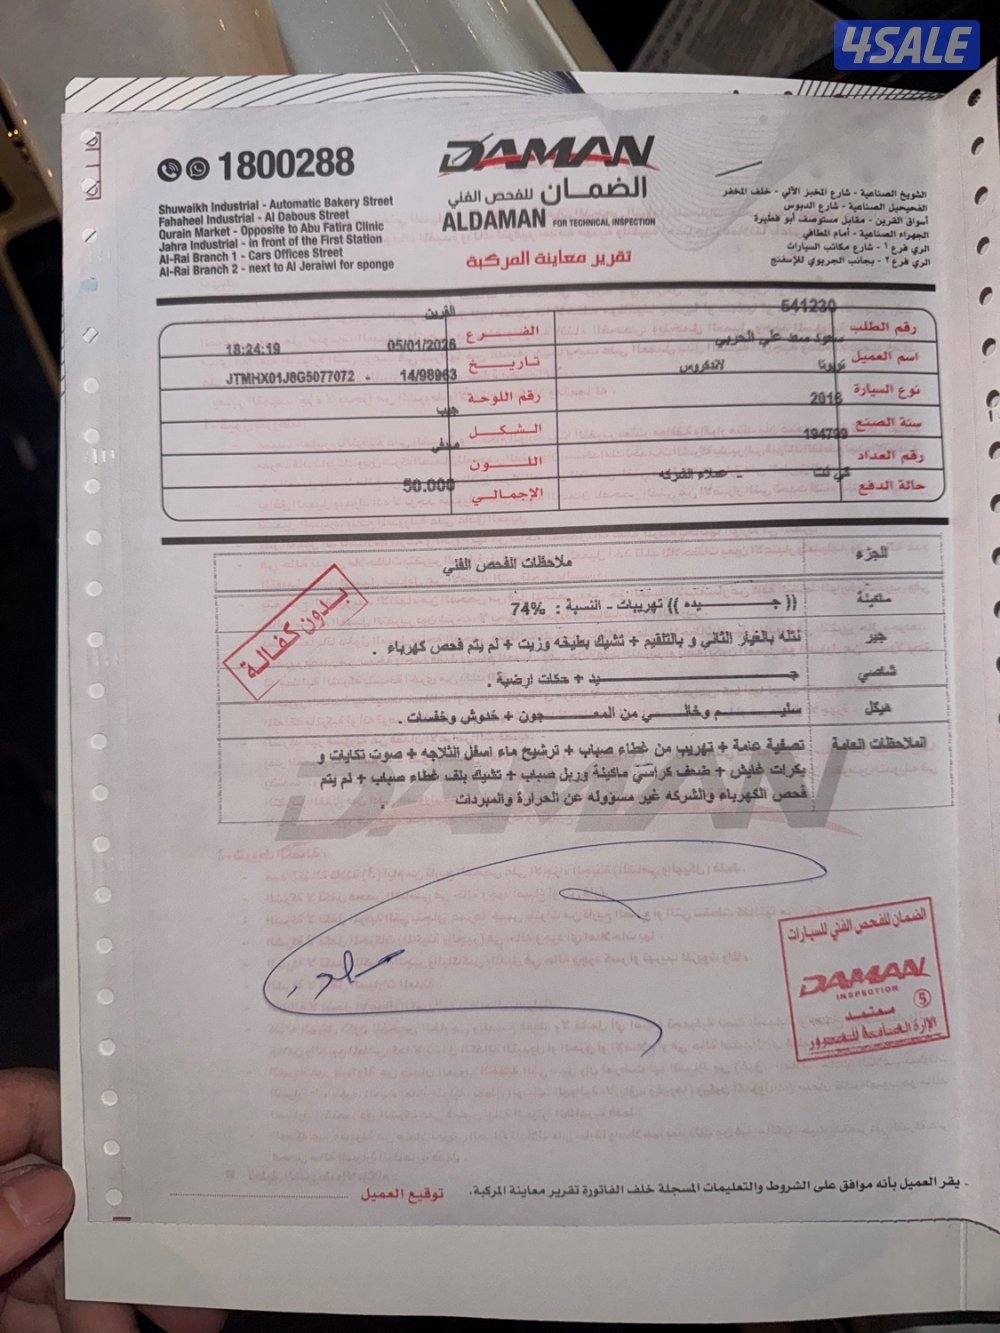 4SALE
1800288
Shuwaikh Industrial - Automatic Bakery Street
Fahaheel Industrial - Al Dabous Street
Qurain Market - Opposite to Abu Fatira Clinic
Jahra Industrial - in front of the First Station
Al-Rai Branch 1 - Cars Offices Street
Al-Rai Branch 2 - next to Al Jeraiwi for sponge
DAMAN
الضمان للفحص الفني
ALDAMAN FOR TECHNICAL INSPECTION
تقرير معاينة المركبة
الشويخ الصناعية - شارع المخبز الآلي - خلف المخفر
الفحيحيل الصناعية - شارع الدبوس
أسواق القرين - مقابل مستوصف أبو فطيرة
الجهراء الصناعية - أمام المطافي
الري فرع ١ - شارع مكاتب السيارات
الري فرع ٢ - بجانب الجريوي للإسفنج
رقم الطلب 541230
الفرع القرين
اسم العميل سعود سعد علي الحربي
تاريخ 05/01/2026 18:24:19
نوع السيارة تويوتا لاندكروس
رقم اللوحة 14/98963 - JTMHX01J8G5077072
سنة الصنع 2016
الشكل جيب
رقم العداد 194799
اللون
حالة الدفع كي نت - عملاء الشركه
الإجمالي 50.000
الجزء ملاحظات الفحص الفني
ماكينة (( جيده )) تهريبات - النسبة : 74%
جير نتله بالغيار الثاني و بالتلقيم + تشيك بطيخه وزيت + لم يتم فحص كهرباء .
شاصي جيد + حكات ارضية .
هيكل سليم وخالي من المعجون + خدوش وخفسات .
الملاحظات العامة تصفية عامة + تهريب من غطاء صباب + ترشيح ماء اسفل الثلاجه + صوت تكايات و
بكرات قايش + ضعف كراسي ماكينة وربل صباب + تشيك بلف غطاء صباب + لم يتم
فحص الكهرباء والشركه غير مسؤوله عن الحرارة والمبردات .
بدون كفالة
DAMAN
الضمان للفحص الفني للسيارات
DAMAN
INSPECTION
5
معتمد
الإدارة العامة للمرور
. يقر العميل بأنه موافق على الشروط والتعليمات المسجلة خلف الفاتورة تقرير معاينة المركبة. توقيع العميل